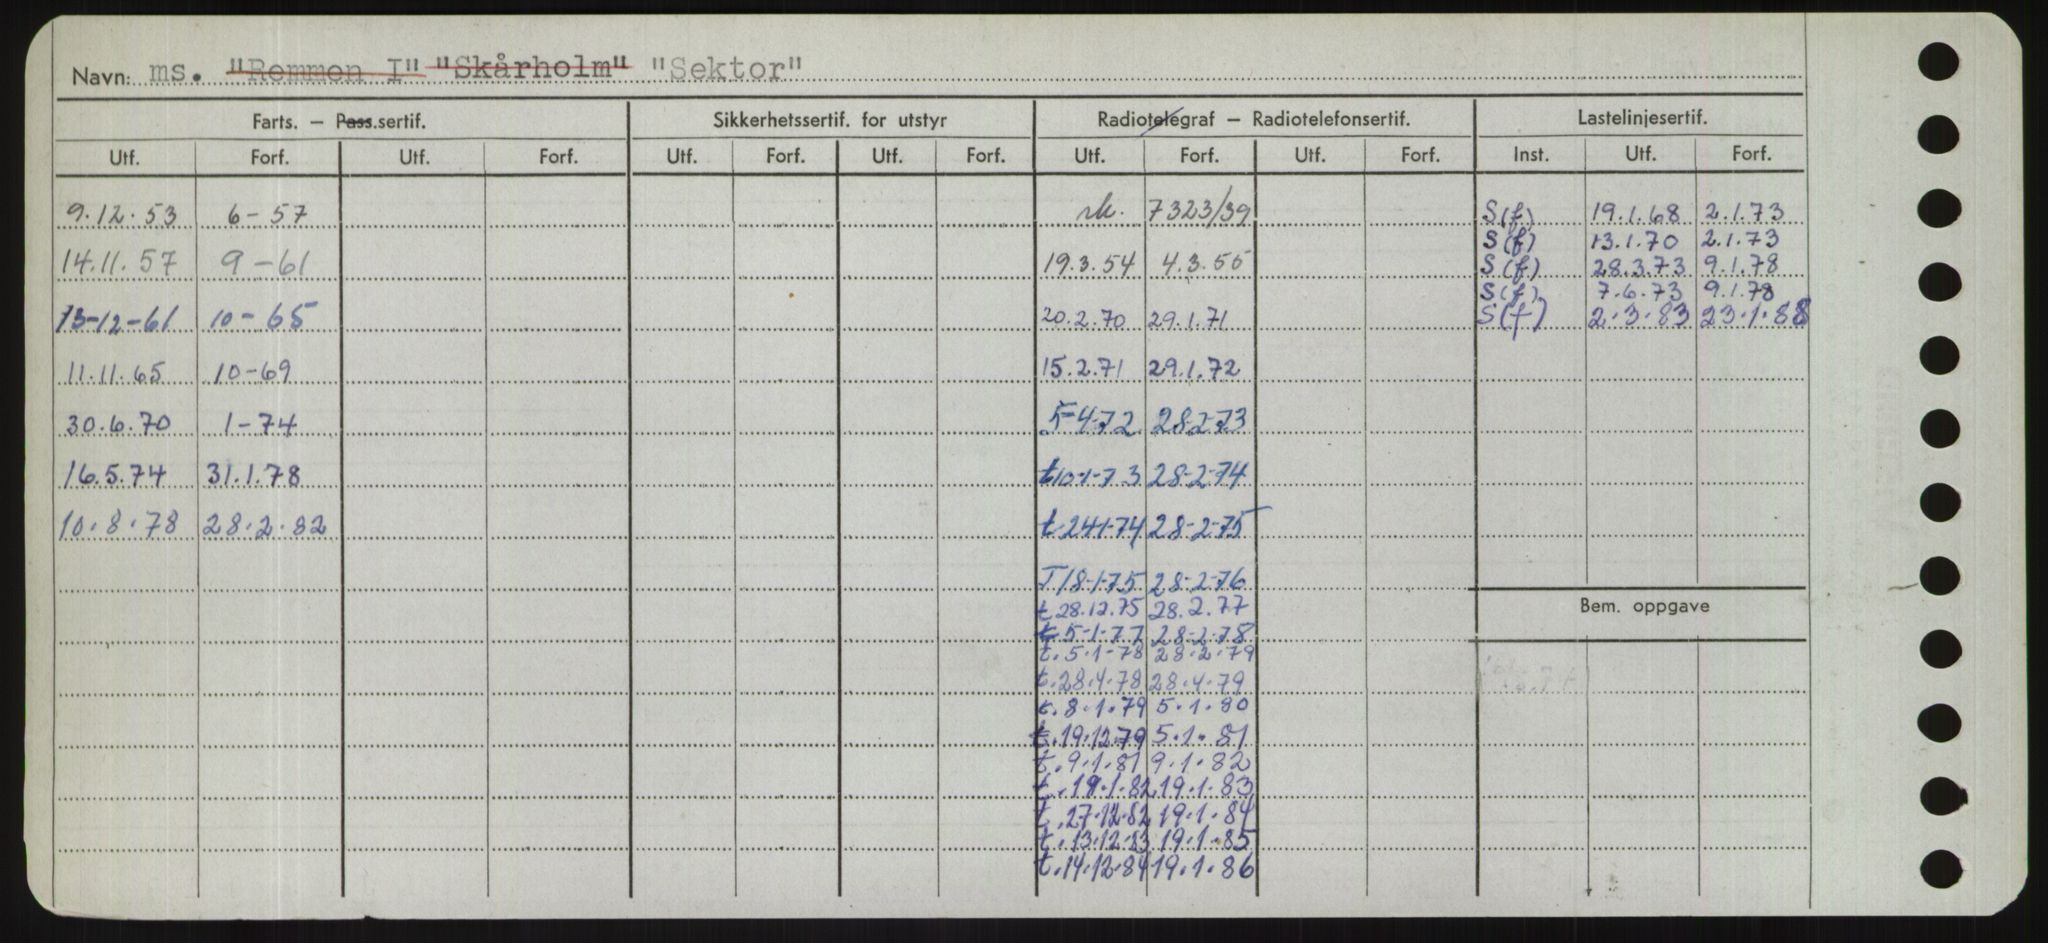 Navn: ms. "Remmen I" "Skårholm" "Sektor"
Farts. – Pass.sertif. Sikkerhetssertif. for utstyr Radiotelegraf – Radiotelefonsertif. Lastelinjesertif.
Utf. Forf. Utf. Forf. Utf. Forf. Utf. Forf. Utf. Forf. Utf. Forf. Inst. Utf. Forf.
9.12.53 6-57 rk. 7323/39 S(f) 19.1.68 2.1.73
S(f) 13.1.70 2.1.73
14.11.57 9-61 19.3.54 4.3.55 S(f) 28.3.73 9.1.78
S(f) 7.6.73 9.1.78
13-12-61 10-65 20.2.70 29.1.71 S(f) 2.3.83 23.1.88
11.11.65 10-69 15.2.71 29.1.72
30.6.70 1-74 5-4-72 28-2-73
16.5.74 31.1.78 t10-1-73 28-2-74
10.8.78 28.2.82 t.24-1-74 28-2-75
T18-1-75 28-2-76
t28.12.75 28.2.77
Bem. oppgave
t5-1-77 28-2-78
t.5.1-78 28.2.79
t.28.4.78 28.4.79
t.8.1.79 5.1.80
t.19.12.79 5.1.81
t.9.1.81 9.1.82
t.19.1.82 19.1.83
t.27.12.82 19.1.84
t.13.12.83 19.1.85
t.14.12.84 19.1.86